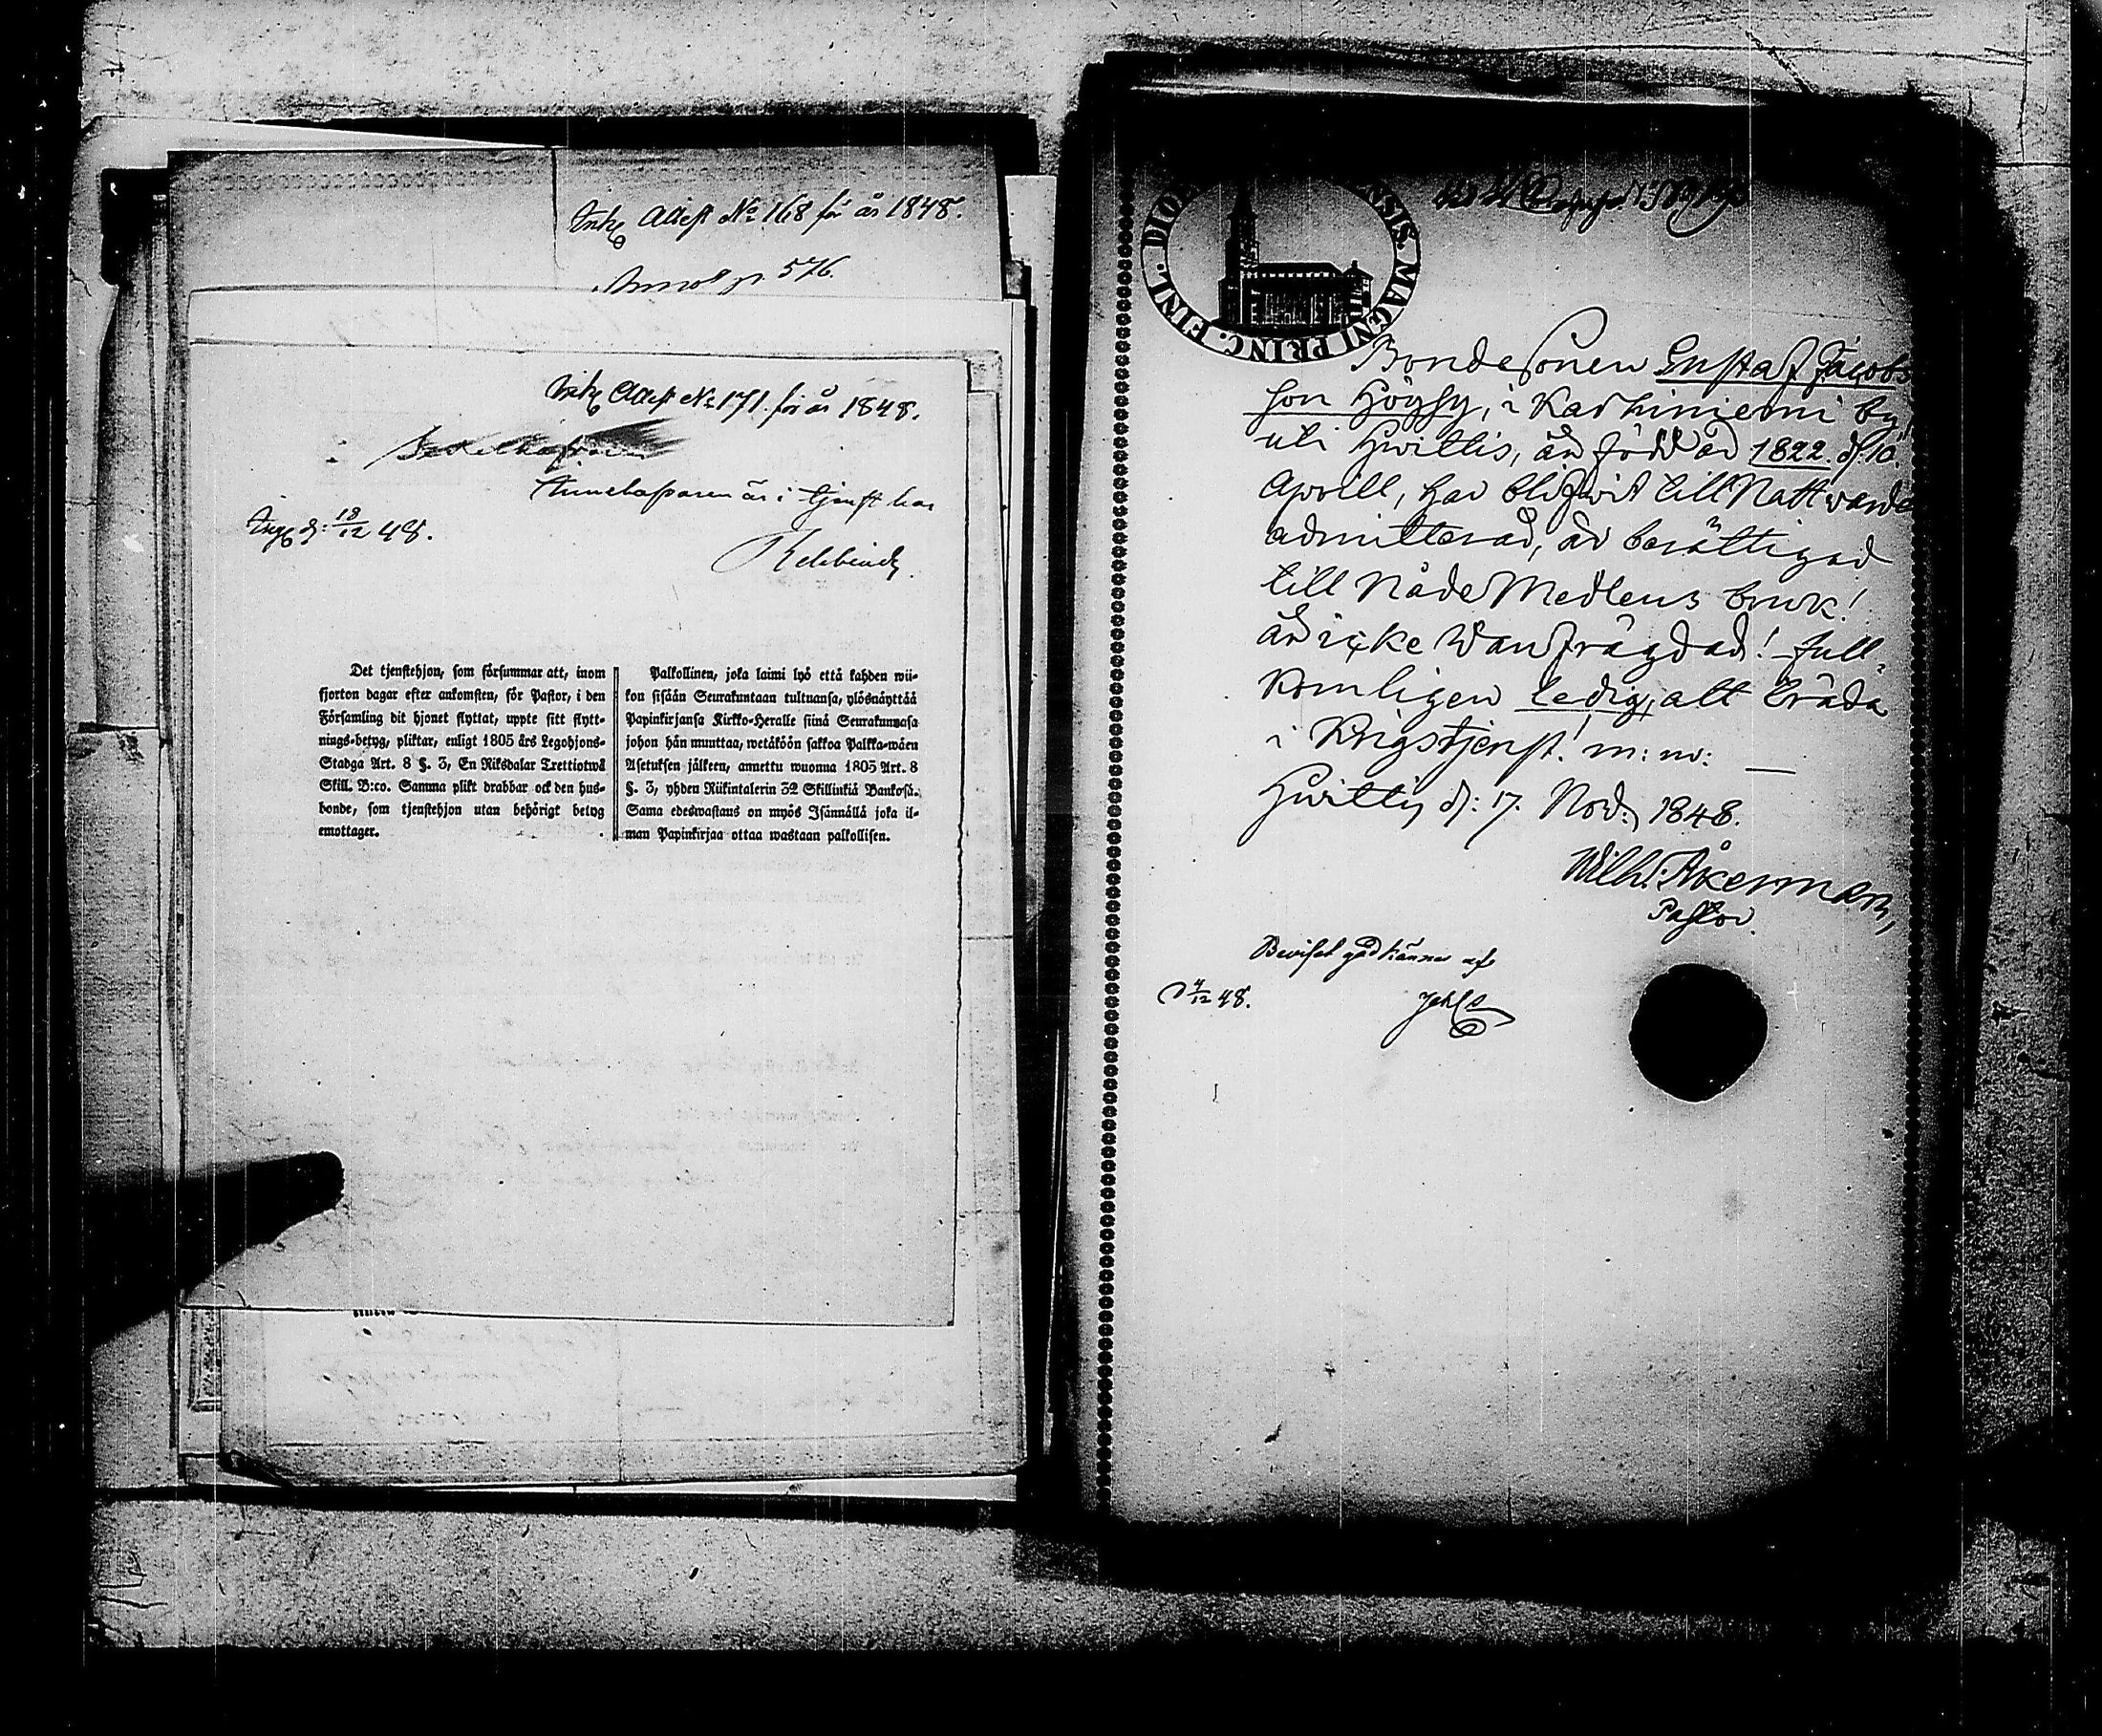 Attest No 168 för år 1848.
p. 576.
Attest No 171. för år 1848.
är i tjenst hos
d: 18/12 48.
Rehbinder
Det tjenstehjon, som försummar att, inom
fjorton dagar efter ankomsten, för Pastor, i den
Församling dit hjonet flyttat, uppte sitt flytt-
nings-betyg, pliktar, enligt 1805 års Legohjons-
Stadga Art. 8 §. 3, En Riksdalar Trettiotwå
Skill. B:co. Samma plikt drabbar ock den hus-
bonde, som tjenstehjon utan behörigt betyg
emottager.
Palkollinen, joka laimi lyö että kahden wii-
kon sisään Seurakuntaan tultuansa, ylösnäyttää
Papinkirjansa Kirkko-Heralle siinä Seurakunnasa
johon hän muuttaa, wetäköön sakkoa Palkka-wäen
Asetuksen jälkeen, annettu wuonna 1805 Art. 8
§. 3, yhden Riikintalerin 32 Skillinkiä Bankosa.
Sama edeswastaus on myös Isännällä joka il-
man Papinkirjaa ottaa wastaan palkollisen.
FINL. DIOE ENSIS. MAGNI PRINC.
Bondesonen Gustaf Jacobs
son Höggy, i Karhiniemi by
uti Hwittis, är född år 1822. d. 10.
Aprill, har blifwit till Nattward
admitterad, är berättigad
till Nåde Medlens bruk!
är icke wanfrägdad! full-
komligen ledig, att träda
i Krigstjenst! m: m: —
Hwittis d: 17. Nov: 1848.
Wilh: Åkerman,
Pastor.
Beviset godkännes af
d 4/12 48.